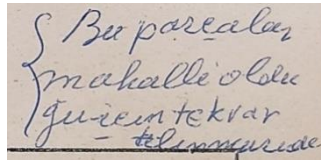 Bu parçalar
mahalli oldu
ğu için tekrar